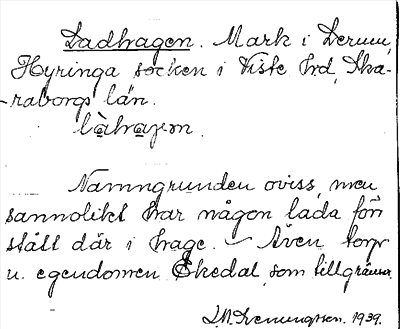 Ladhagen. Mark i Lerum,
Hyringa socken i Viste hrd, Ska-
raborgs län.
làhagen.
Namngrunden oviss, men
sannolikt har någon lada för
stått där i hage. – Även torp
u. egendomen Ekedal, som tillgräns.
1939.